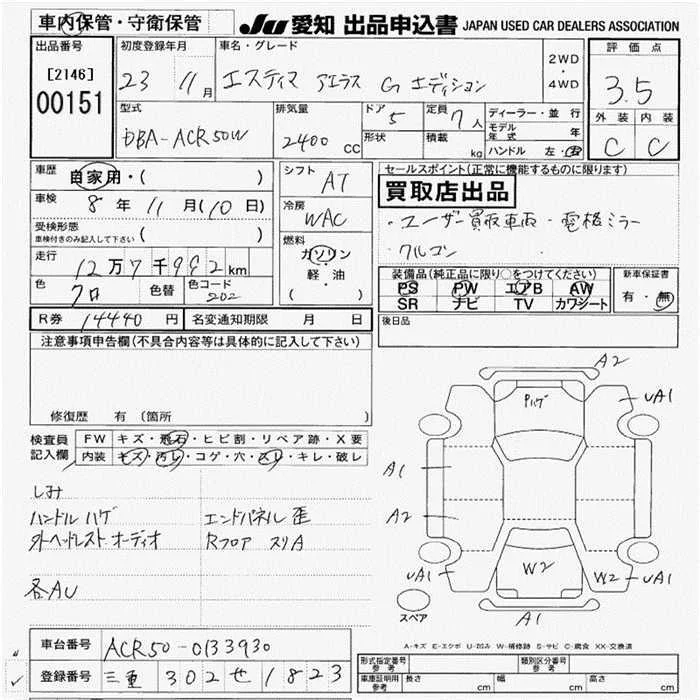 車内保管・守衛保管
JU 愛知 出品申込書 JAPAN USED CAR DEALERS ASSOCIATION
出品番号
[2146]
00151
初度登録年月
23 11月
車名・グレード
エスティマ アエラス G エディション
2WD
・
4WD
評価点
3.5
外装 内装
C C
型式
DBA-ACR50W
排気量
2400 CC
ドア 5
形状
定員 7人
積載 kg
ディーラー・並行
モデル年式 年
ハンドル 左・右
車歴 自家用・( )
車検 8年 11月(10日)
受検形態
車検付きのみ記入して下さい ( )
走行
12万7千982km
色 クロ
色替
色コード 202
シフト AT
冷房 WAC
燃料
ガソリン
・
軽・油
( )
セールスポイント(正常に機能するものに限ります)
買取店出品
・ユーザー買取車両・電格ミラー
・クルコン
装備品(純正品に限り○をつけてください)
PS PW エアB AW
SR ナビ TV カワシート
新車保証書
有・無
R券 14440円
名変通知期限 月 日
後日品
注意事項申告欄(不具合内容等は具体的に記入して下さい)
修復歴 有(箇所 )
検査員
記入欄
FW キズ・飛石・ヒビ割・リペア跡・X要
内装 キズ・汚レ・コゲ・穴・スレ・キレ・破レ
しみ
ハンドルハゲ エンドパネル歪
外ヘッドレストオーディオ Rフロア スリA
各AU
A2
Pハゲ
UA1
A1
A2
W2
UA1
W2
UA1
A1
スペア
A-キズ E-エクボ U-凹み W-補修跡 S-サビ C-腐食 XX-交換済
車台番号 ACR50-0133930
登録番号 三重 302 せ 1823
形式指定番号 参考
類別区分番号 参考
車庫証明用 参考 長さ cm 幅 cm 高さ cm